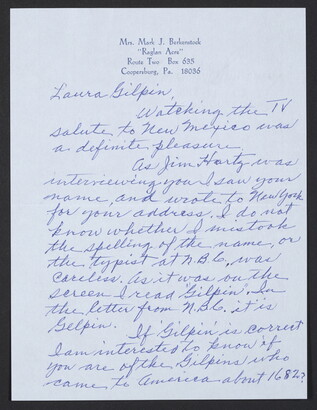 Mrs. Mark J. Berkenstock
"Raglan Acre"
Route Two Box 635
Coopersburg, Pa. 18036
Laura Gilpin,
Watching the TV
salute to New Mexico was
a definite pleasure.
As Jim Hartz was
interviewing you I saw your
name, and wrote to New York
for your address. I do not
know whether I mistook
the spelling of the name, or
the typist at N.B.C. was
careless. As it was on the
screen I read "Gilpin". In
the letter from N.B.C. it is
Gelpin.
If "Gilpin" is correct
I am interested to know if
you are of the Gilpins who
came to America about 1682?